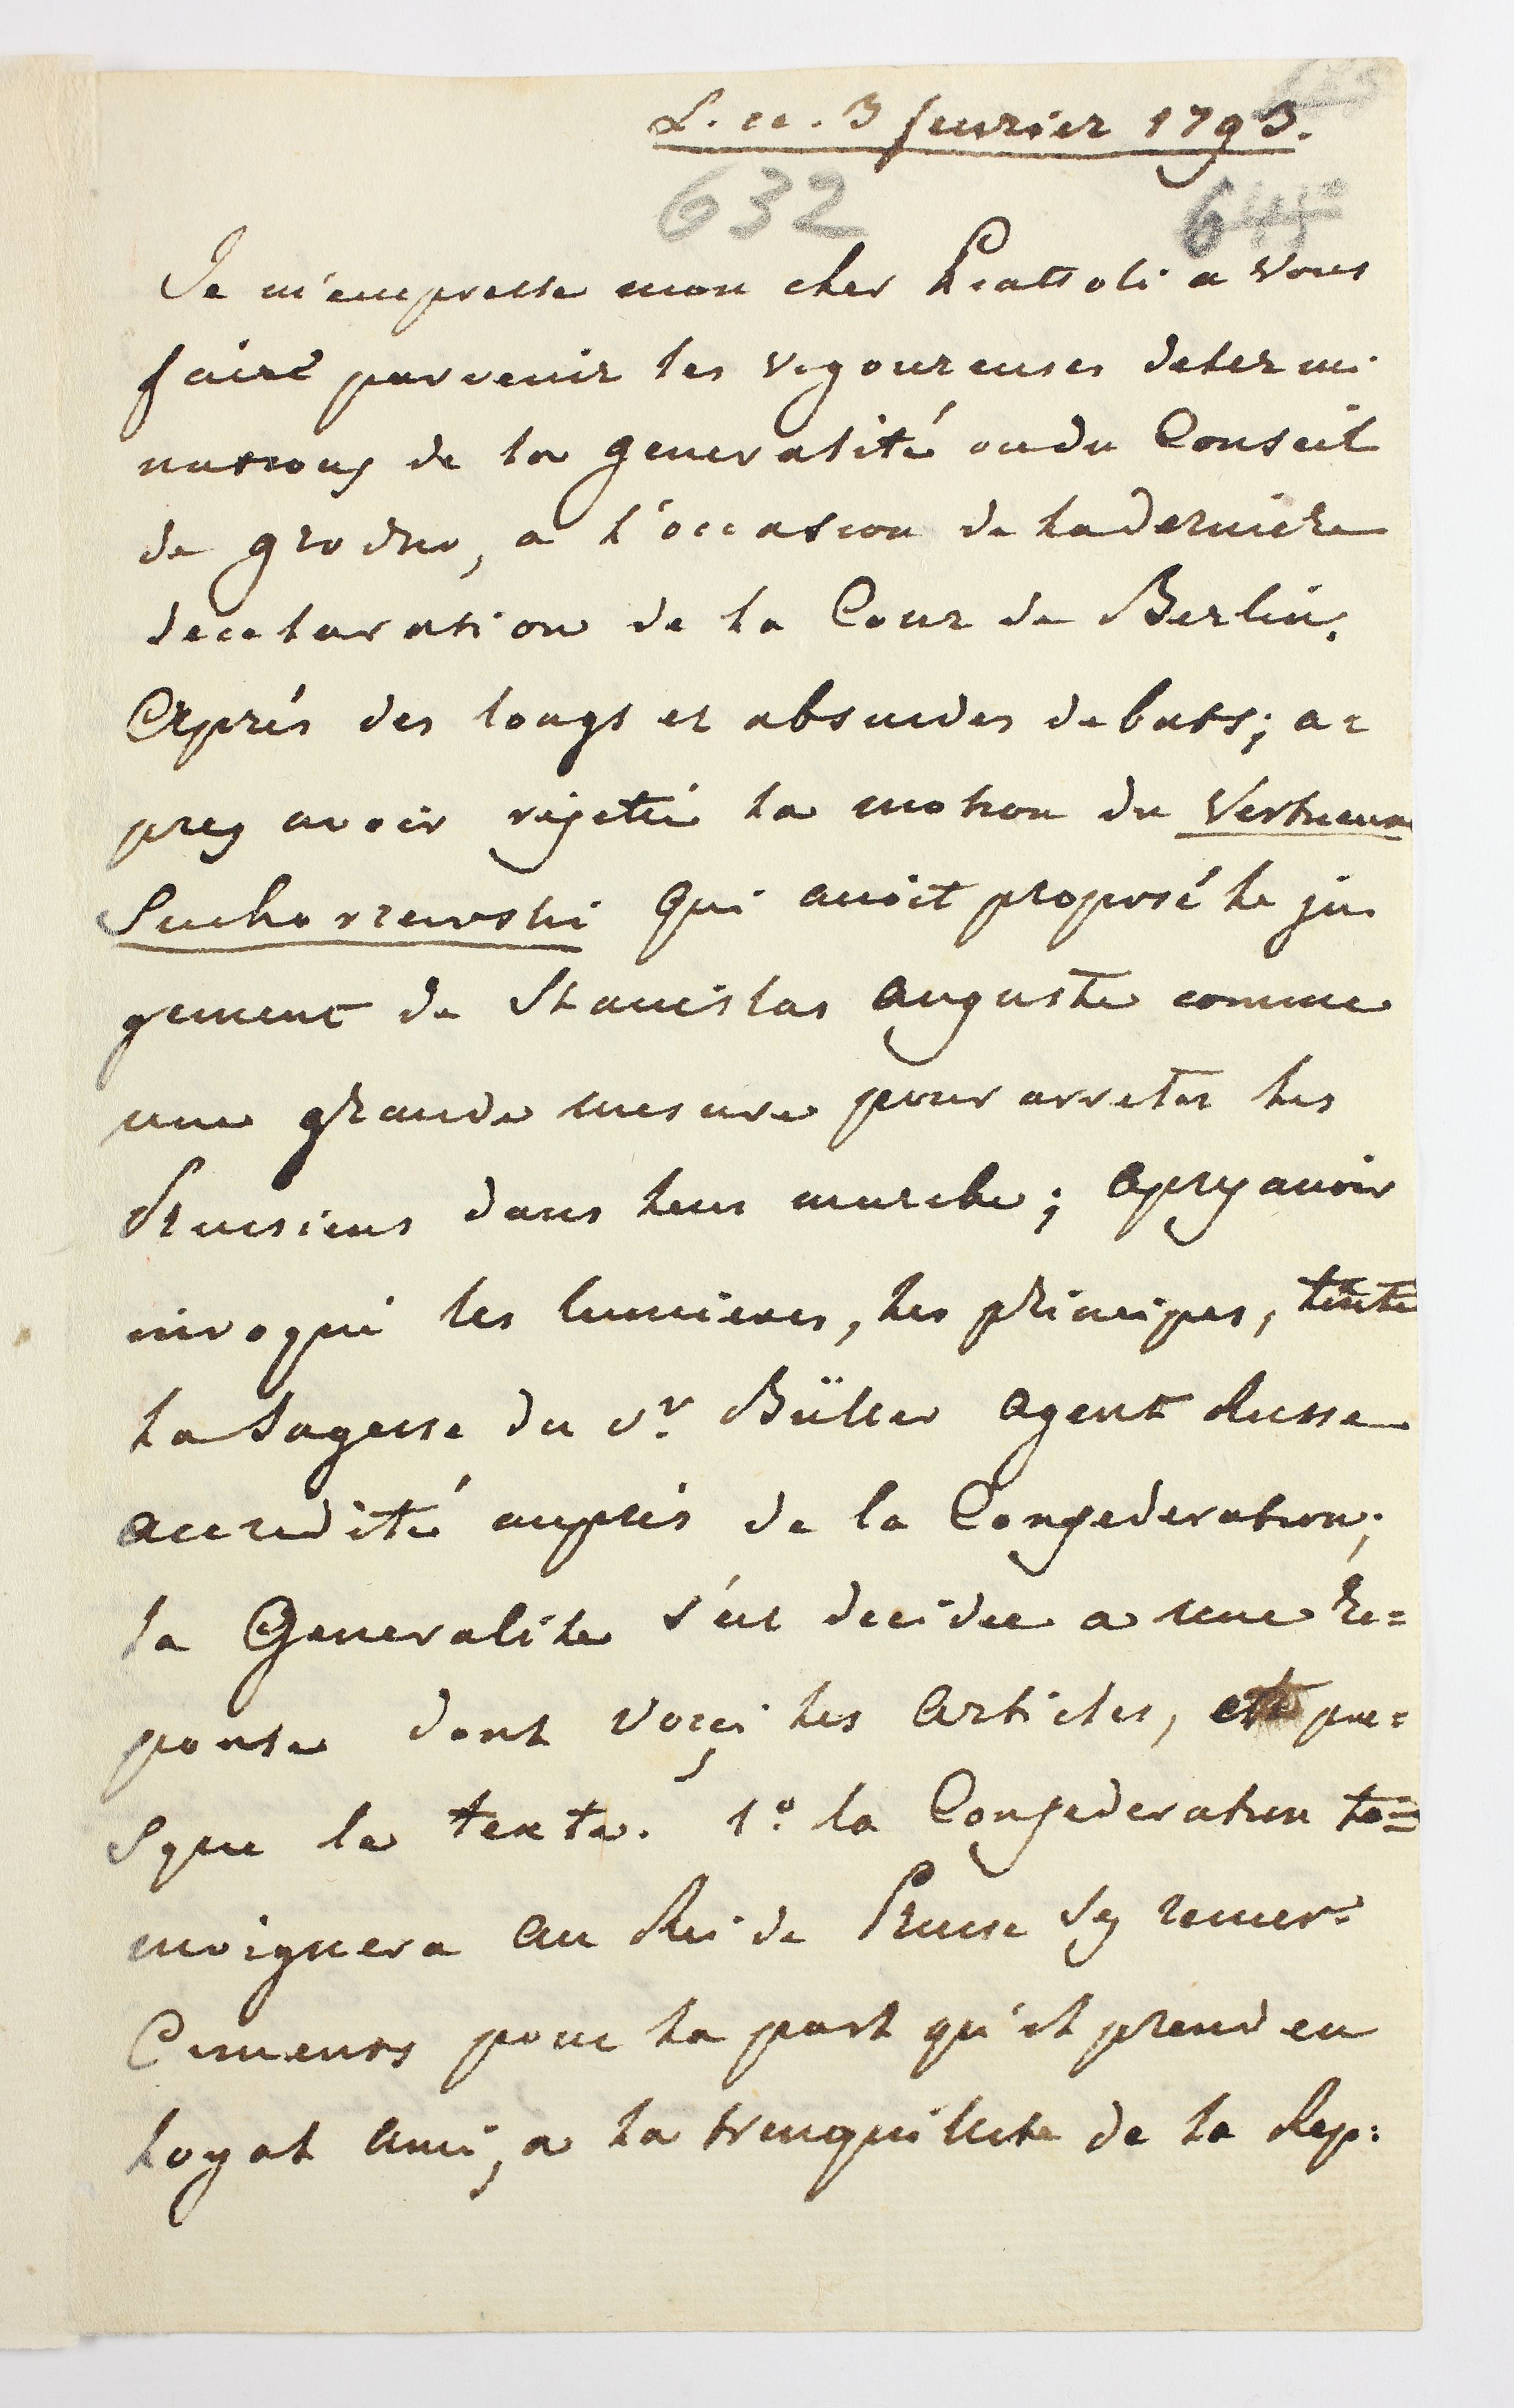 L. ce. 3 fevrier 1793.
632
Je m'empresse mon cher Piattoli a vous
faire parvenir les vigoureuses determi
nations de la generalité ou du Conseil
de grodno, a l'occasion de la derniere
decclaration de la Cour de Berlin.
Après des longs et absurdes debats; a=
pres avoir rejetté la motion du Vertueux
Suchorzewski qui avoit proposé le ju
gement de Stanislas auguste comme
une grande mesure pour arreter les
Prussiens dans leur marche; apres avoir
invoqué les lumieres, les principes, toute
la sagesse du Sr. Büller agent Russe
accredité auprès de la Confederation;
la Generalite s'est decidee a une Re=
ponse dont voiçi les articles, et pre=
sque le texte. 1o. la Confederation te=
moignera au Roi de Prusse ses remer=
Cimens pour la part qu'il prend en
loyal ami, a la tranquillite de la Rep: